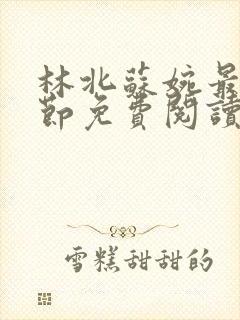 林北蘇婉最
節免費閱讀
雪糕甜甜的